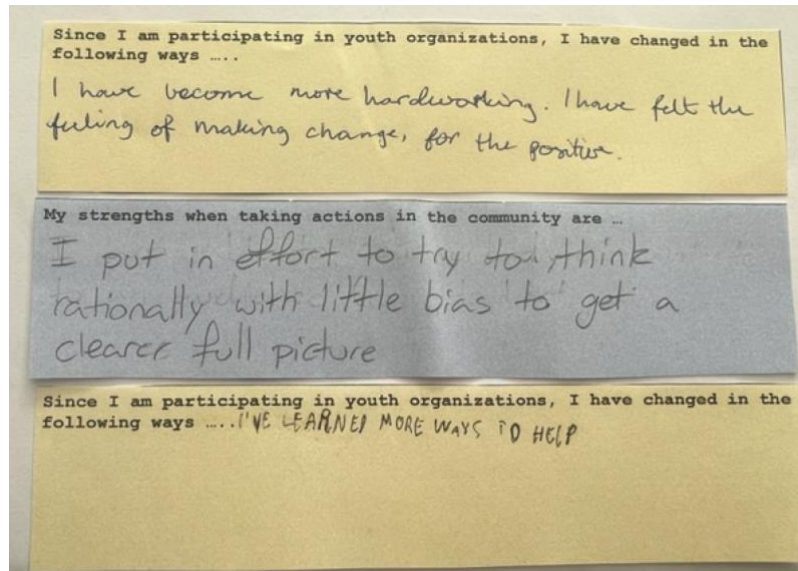 Since I am participating in youth organizations, I have changed in the
following ways …..
I have become more hardworking. I have felt the
feeling of making change, for the positive.
My strengths when taking actions in the community are …
I put in effort to try to think
rationally with little bias to get a
clearer full picture
Since I am participating in youth organizations, I have changed in the
following ways …..I'VE LEARNED MORE WAYS TO HELP